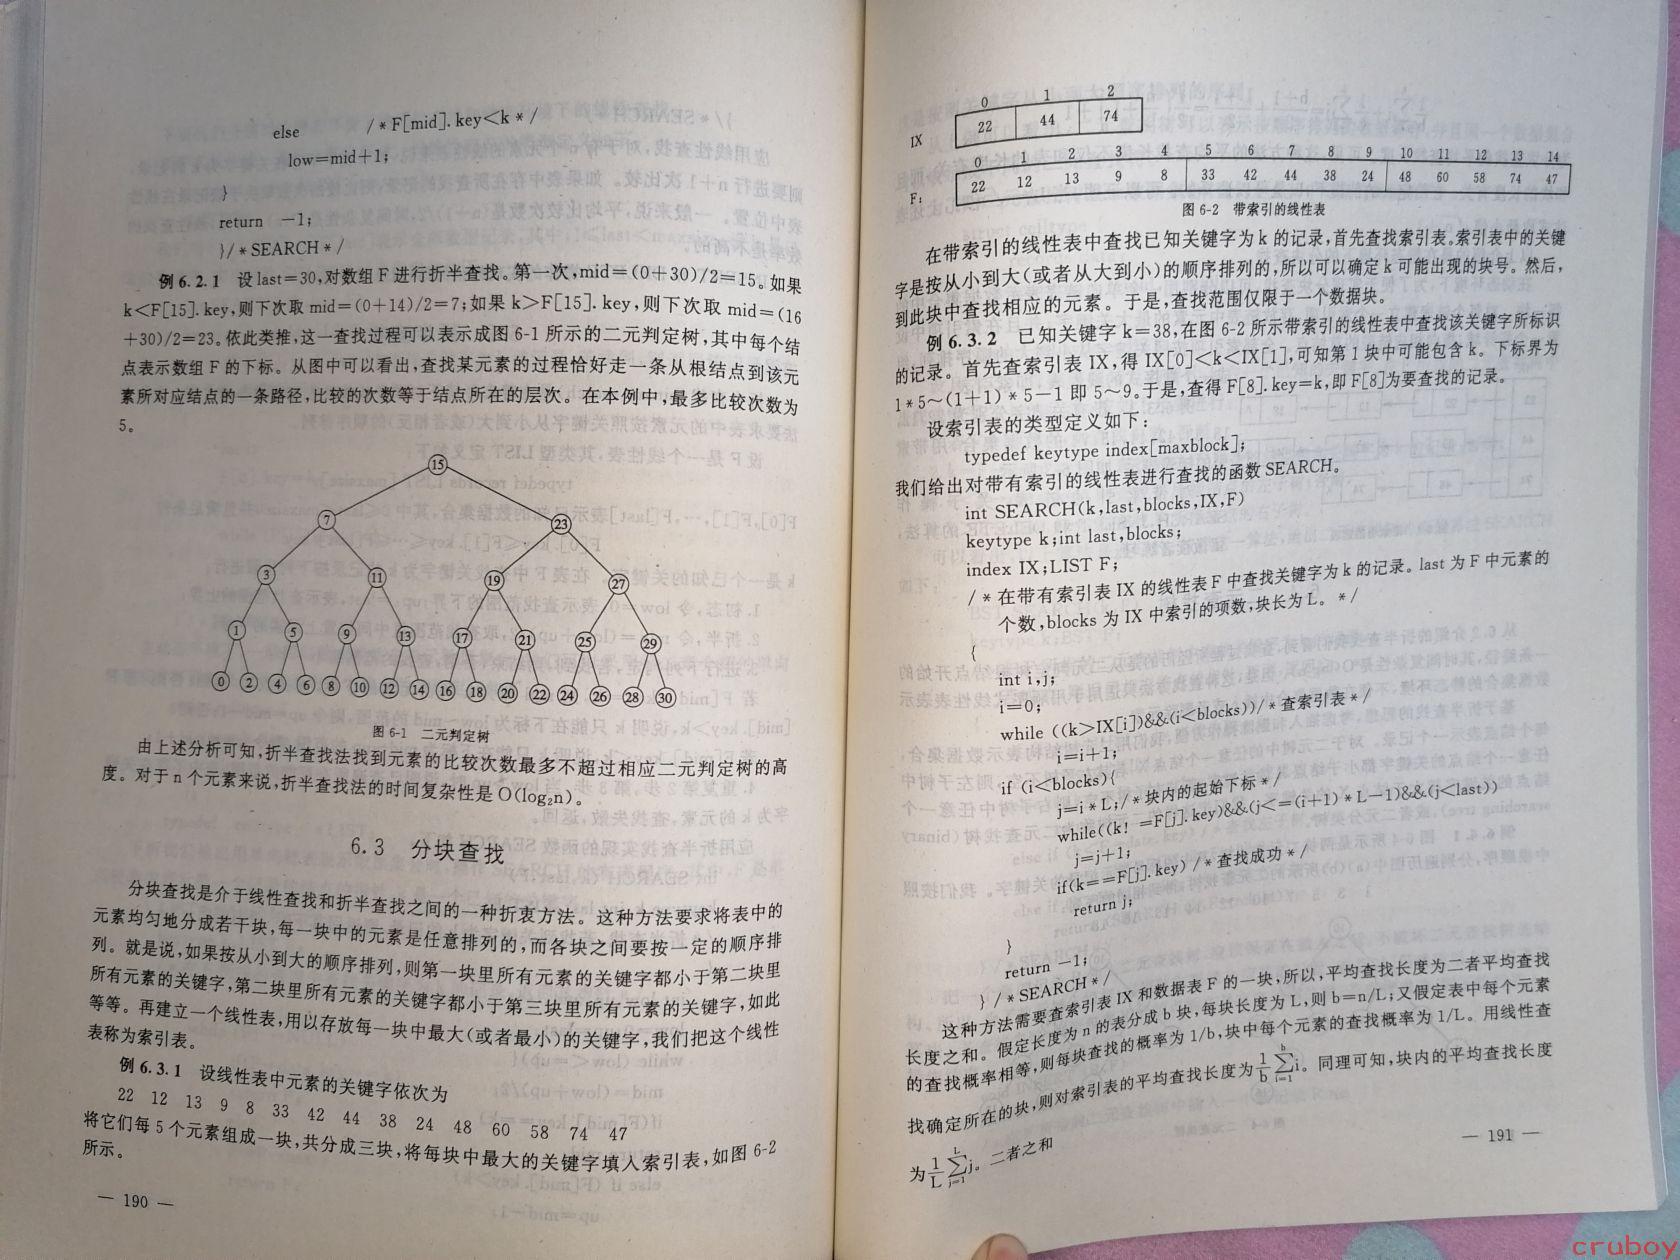 else /*F[mid].key<k*/
low=mid+1;
}
return -1;
}/*SEARCH*/
例6.2.1 设last=30,对数组F进行折半查找。第一次,mid=(0+30)/2=15。如果
k<F[15].key,则下次取mid=(0+14)/2=7;如果k>F[15].key,则下次取mid=(16
+30)/2=23。依此类推,这一查找过程可以表示成图6-1所示的二元判定树,其中每个结
点表示数组F的下标。从图中可以看出,查找某元素的过程恰好走一条从根结点到该元
素所对应结点的一条路径,比较的次数等于结点所在的层次。在本例中,最多比较次数为
5。
15
7 23
3 11 19 27
1 5 9 13 17 21 25 29
0 2 4 6 8 10 12 14 16 18 20 22 24 26 28 30
图6-1 二元判定树
由上述分析可知,折半查找法找到元素的比较次数最多不超过相应二元判定树的高
度。对于n个元素来说,折半查找法的时间复杂性是O(log₂n)。
6.3 分块查找
分块查找是介于线性查找和折半查找之间的一种折衷方法。这种方法要求将表中的
元素均匀地分成若干块,每一块中的元素是任意排列的,而各块之间要按一定的顺序排
列。就是说,如果按从小到大的顺序排列,则第一块里所有元素的关键字都小于第二块里
所有元素的关键字,第二块里所有元素的关键字都小于第三块里所有元素的关键字,如此
等等。再建立一个线性表,用以存放每一块中最大(或者最小)的关键字,我们把这个线性
表称为索引表。
例6.3.1 设线性表中元素的关键字依次为
22 12 13 9 8 33 42 44 38 24 48 60 58 74 47
将它们每5个元素组成一块,共分成三块,将每块中最大的关键字填入索引表,如图6-2
所示。
— 190 —
0 1 2
IX 22 44 74
0 1 2 3 4 5 6 7 8 9 10 11 12 13 14
F: 22 12 13 9 8 33 42 44 38 24 48 60 58 74 47
图6-2 带索引的线性表
在带索引的线性表中查找已知关键字为k的记录,首先查找索引表。索引表中的关键
字是按从小到大(或者从大到小)的顺序排列的,所以可以确定k可能出现的块号。然后,
到此块中查找相应的元素。于是,查找范围仅限于一个数据块。
例6.3.2 已知关键字k=38,在图6-2所示带索引的线性表中查找该关键字所标识
的记录。首先查索引表IX,得IX[0]<k<IX[1],可知第1块中可能包含k。下标界为
1*5~(1+1)*5-1即5~9。于是,查得F[8].key=k,即F[8]为要查找的记录。
设索引表的类型定义如下:
typedef keytype index[maxblock];
我们给出对带有索引的线性表进行查找的函数SEARCH。
int SEARCH(k,last,blocks,IX,F)
keytype k;int last,blocks;
index IX;LIST F;
/*在带有索引表IX的线性表F中查找关键字为k的记录。last为F中元素的
个数,blocks为IX中索引的项数,块长为L。*/
{
int i,j;
i=0;
while ((k>IX[i])&&(i<blocks))/*查索引表*/
i=i+1;
if (i<blocks){
j=i*L;/*块内的起始下标*/
while((k!=F[j].key)&&(j<=(i+1)*L-1)&&(j<last))
j=j+1;
if(k==F[j].key) /*查找成功*/
return j;
}
return -1;
}/*SEARCH*/
这种方法需要查索引表IX和数据表F的一块,所以,平均查找长度为二者平均查找
长度之和。假定长度为n的表分成b块,每块长度为L,则b=n/L;又假定表中每个元素
的查找概率相等,则每块查找的概率为1/b,块中每个元素的查找概率为1/L。用线性查
找确定所在的块,则对索引表的平均查找长度为$\frac{1}{b}\sum_{i=1}^{b}i$。同理可知,块内的平均查找长度
为$\frac{1}{L}\sum_{j=1}^{L}j$。二者之和
— 191 —
cruboy